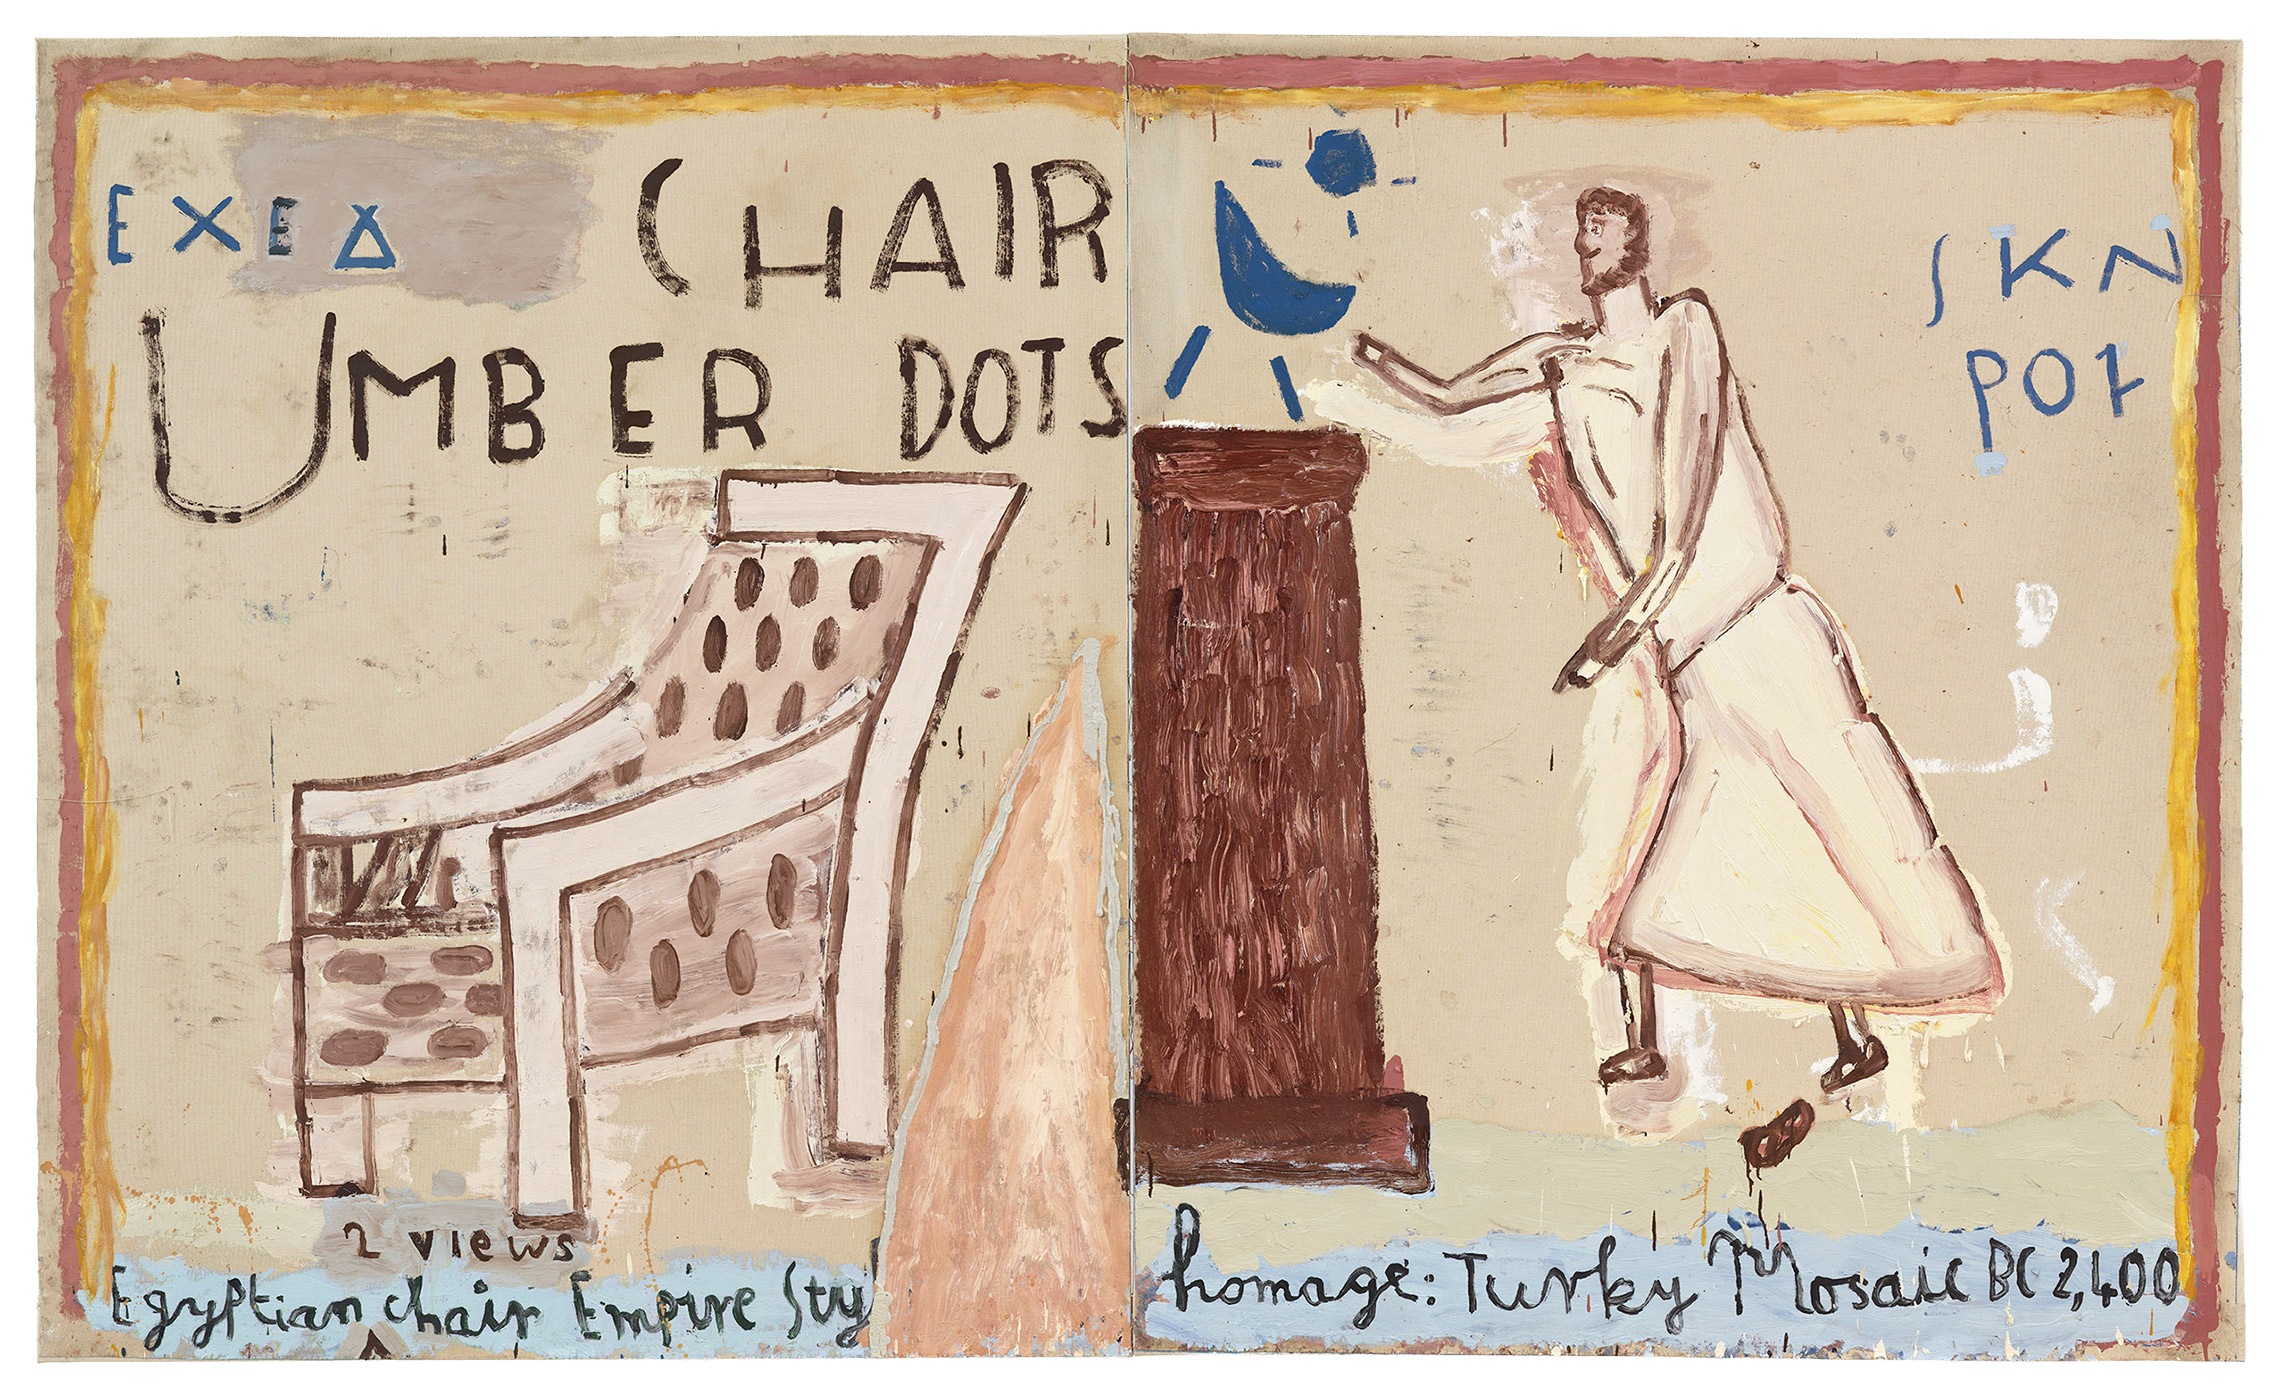 EXEΔ
CHAIR
UMBER DOTS
SKN
POT
2 views
Egyptian chair Empire Sty
homage: Turky Mosaic BC 2,400